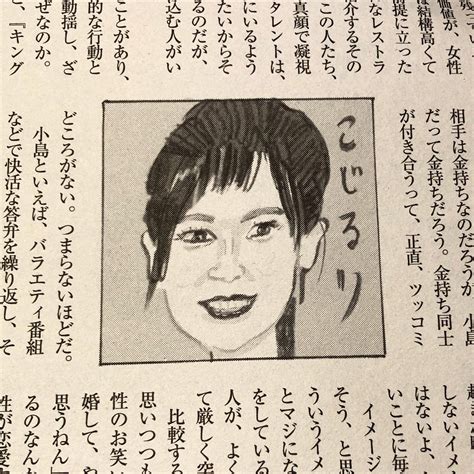 価値が、女性
は結構高くて
提に立った
なレストラ
介するその
この人たち、
真顔で凝視
タレントは、
にいるよう
たいからそ
るのだが、
込む人がい
ことがあり、
的な行動と
動揺し、ざ
ぜなのか。
と、『キング
相手は金持ちなのだろうが、小島
だって金持ちだろう。金持ち同士
が付き合うって、正直、ツッコミ
こじるり
どころがない。つまらないほどだ。
小島といえば、バラエティ番組
などで快活な答弁を繰り返し、そ
しないイメ
はないよ、
いことに毎
イメージ
そう、と思
ういうイ
とマジにな
をしている
て厳しく突
人が、
比較する
思いつつも
性のお笑い
婚して、や
思うねん」
るのなん
性が恋愛